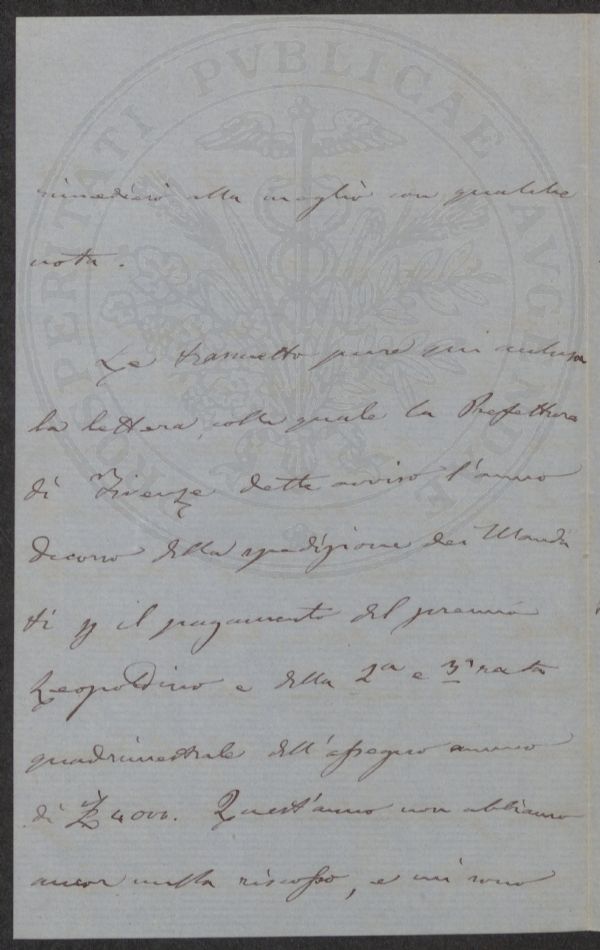 PROSPERITATI PVBLICAE AVGENDAE
rimedierò alla meglio con qualche
nota.
Le trasmetto pure qui inclusa
la lettera, colla quale la Prefettura
di Firenze dette avviso l'anno
decorso della spedizione dei Manda
ti p il pagamento del premio
Leopoldino e della 2ª e 3ª rata
quadrimestrale dell'assegno annuo
di £ 4000. Quest'anno non abbiamo
ancor nulla riscosso, e mi sono